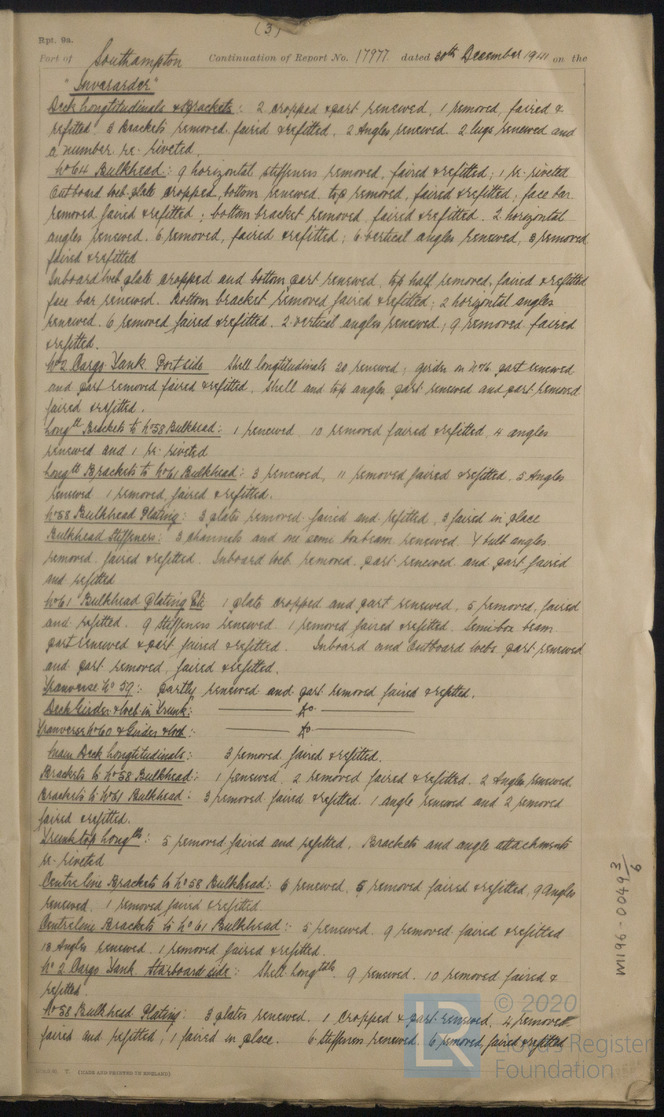 (3)
Rpt. 9a.
Port of Southampton Continuation of Report No. 17977 dated 30th December 1941 on the
"Inverarder"
Deck Longtitudinals & Brackets: 2 cropped & part renewed, 1 removed, faired &
refitted 3 Brackets removed, faired & refitted, 2 Angles renewed 2 lugs renewed and
a number re-riveted.
No 64 Bulkhead: 9 horizontal stiffeners removed, faired & refitted; 1 re-riveted
Outboard Web plate cropped, bottom renewed top removed, faired & refitted; face bar
removed faired & refitted; bottom bracket removed faired & refitted. 2 horizontal
angles renewed. 6 removed, faired & refitted; 6 vertical angles renewed, 3 removed
faired & refitted
Inboard Web plate cropped and bottom part renewed, top half removed, faired & refitted
face bar renewed. Bottom bracket removed faired & refitted; 2 horizontal angles
renewed. 6 removed faired & refitted. 2 vertical angles renewed; 9 removed faired
& refitted.
No 2 Cargo Tank Port side Shell longtitudinals 20 renewed; girder on No 6 part renewed
and part removed faired & refitted. Shell and top angles part renewed and part removed
faired & refitted.
Longtl Brackets to No 58 Bulkhead: 1 renewed 10 removed faired & refitted, 4 angles
renewed and 1 re-riveted
Longtl Brackets to No 61 Bulkhead: 3 renewed, 11 removed faired & refitted. 5 Angles
renewed 1 removed, faired & refitted.
No 58 Bulkhead Plating: 3 plates removed faired and refitted, 3 faired in place
Bulkhead Stiffeners: 3 channels and one semi box beam renewed. 4 bulb angles
removed faired & refitted. Inboard Web removed, part renewed and part faired
and refitted
No 61 Bulkhead Plating Etc 1 plate cropped and part renewed, 5 removed, faired
and refitted. 9 stiffeners renewed 1 removed faired & refitted. Semi box beam
part renewed & part faired & refitted. Inboard and Outboard Webs part renewed
and part removed, faired & refitted.
Tranverse No 59: Partly renewed and part removed faired & refitted.
Deck Girder & Web in Trunk: — do —
Tranverse No 60 & Girder & Web: — do —
Main Deck Longtitudinals: 3 removed faired & refitted.
Brackets to No 58 Bulkhead: 1 renewed, 2 removed faired & refitted 2 Angles renewed.
Brackets to No 61 Bulkhead: 3 removed faired & refitted. 1 angle renewed and 2 removed
faired & refitted.
Trunk top Longtl: 5 removed faired and refitted. Brackets and angle attachments
re-riveted
Centre line Brackets to No 58 Bulkhead: 6 renewed, 5 removed faired & refitted, 9 Angles
renewed. 1 removed faired & refitted
Centre line Brackets to No 61 Bulkhead: 5 renewed. 9 removed, faired & refitted
18 Angles renewed 1 removed faired & refitted.
No 2 Cargo Tank Starboard side: Shell Longtdls 9 renewed. 10 removed faired &
refitted.
No 58 Bulkhead Plating: 3 plates renewed. 1 cropped & part renewed, 4 removed
faired and refitted; 1 faired in place. 6 stiffeners renewed. 6 removed, faired & refitted
(MADE AND PRINTED IN ENGLAND)
M196-0049 3/6
LR
© 2020
Lloyd's Register
Foundation